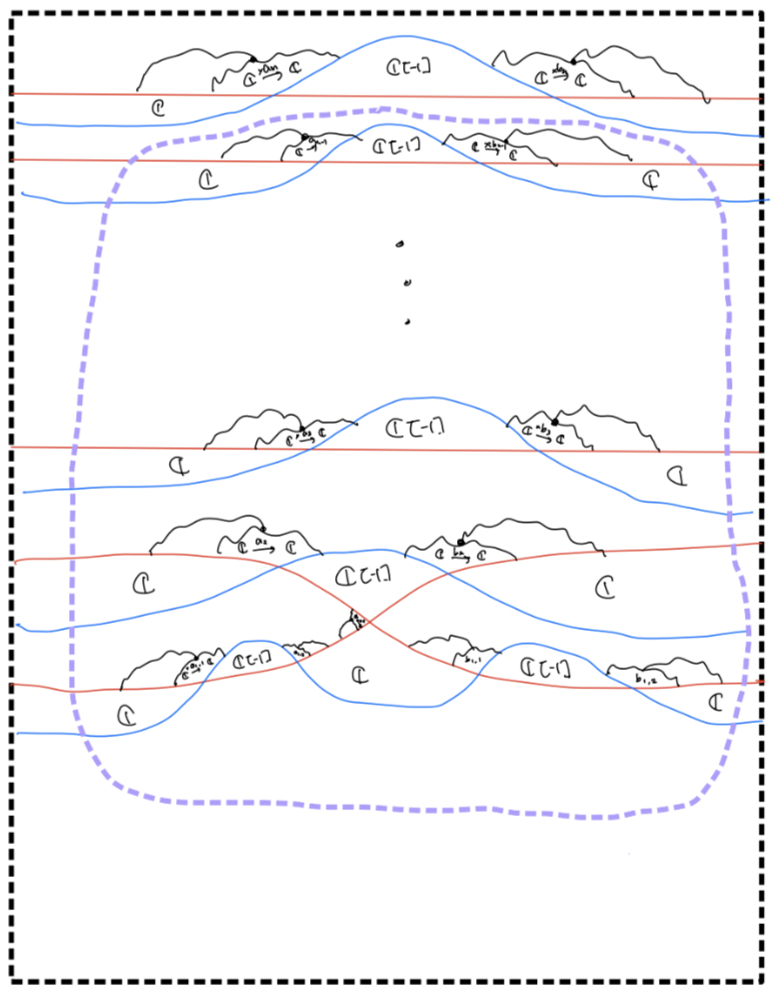 ℂ ×aₙ→ ℂ ℂ[-1] ℂ ×bₙ→ ℂ
ℂ
ℂ aₙ₋₁→ ℂ[-1] ℂ ×bₙ₋₁→ ℂ
ℂ ℂ
ℂ → ℂ ℂ[-1] ℂ ×b₃→ ℂ
ℂ ℂ
ℂ a₂→ ℂ ℂ b₂→ ℂ
ℂ ℂ[-1] ℂ
ℂ ×a₁,₁→ ℂ ℂ[-1] b₁,₁ ℂ[-1]
ℂ b₁,₂
ℂ ℂ